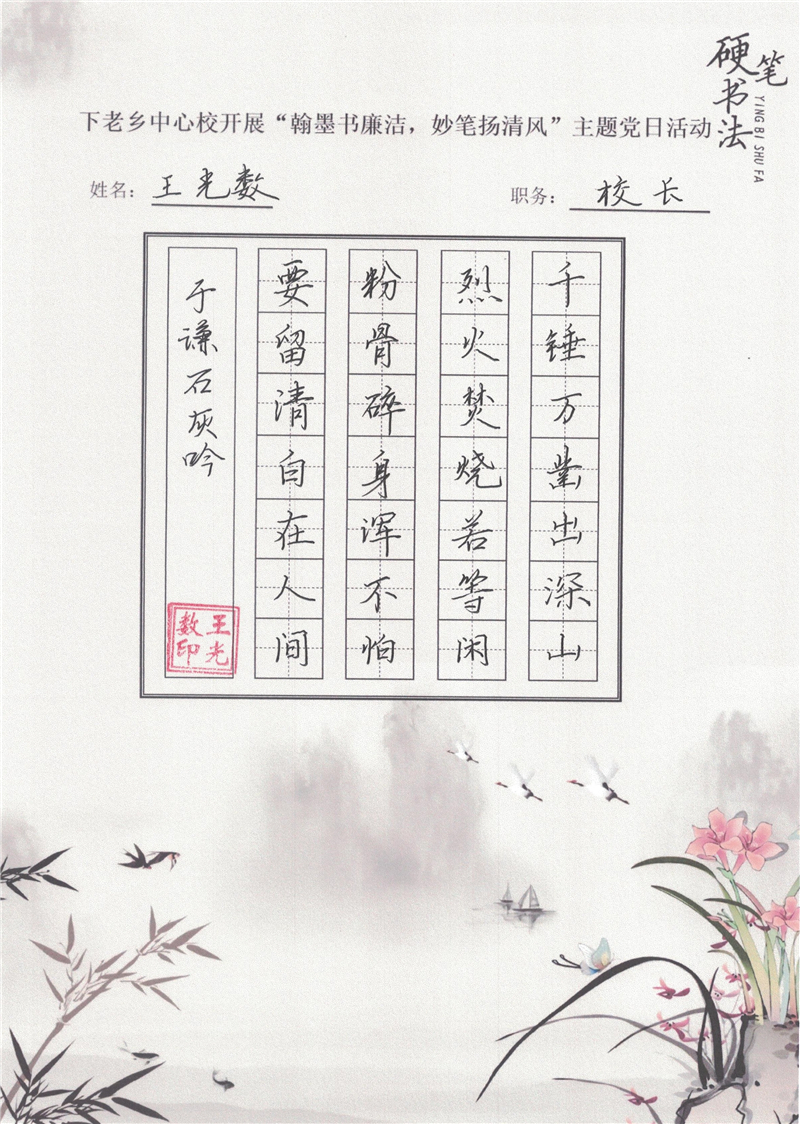 硬笔书法
YING BI SHU FA
下老乡中心校开展“翰墨书廉洁，妙笔扬清风”主题党日活动
姓名：王光数
职务：校长
千锤万凿出深山
烈火焚烧若等闲
粉骨碎身浑不怕
要留清白在人间
于谦石灰吟
王光数印